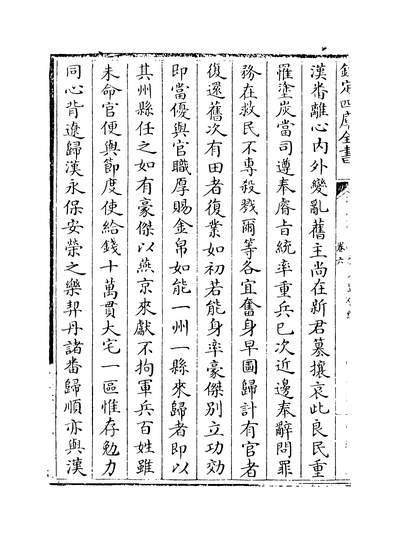 欽定四庫全書
卷六
漢畨離心内外變亂舊主尚在新君慕攘哀此良民重
罹塗炭當司遵奉睿㫖統率重兵已次近邊奉辭問罪
務在救民不專殺戮爾等各宜奮身早圖歸計有官者
復還舊次有田者復業如初若能身率豪傑别立功効
即當優與官職厚賜金帛如能一州一縣來歸者即以
其州縣任之如有豪傑以燕京來獻不拘軍兵百姓雖
未命官便與節度使給錢十萬貫大宅一區惟存勉力
同心背遼歸漢永保安榮之樂契丹諸畨歸順亦與漢